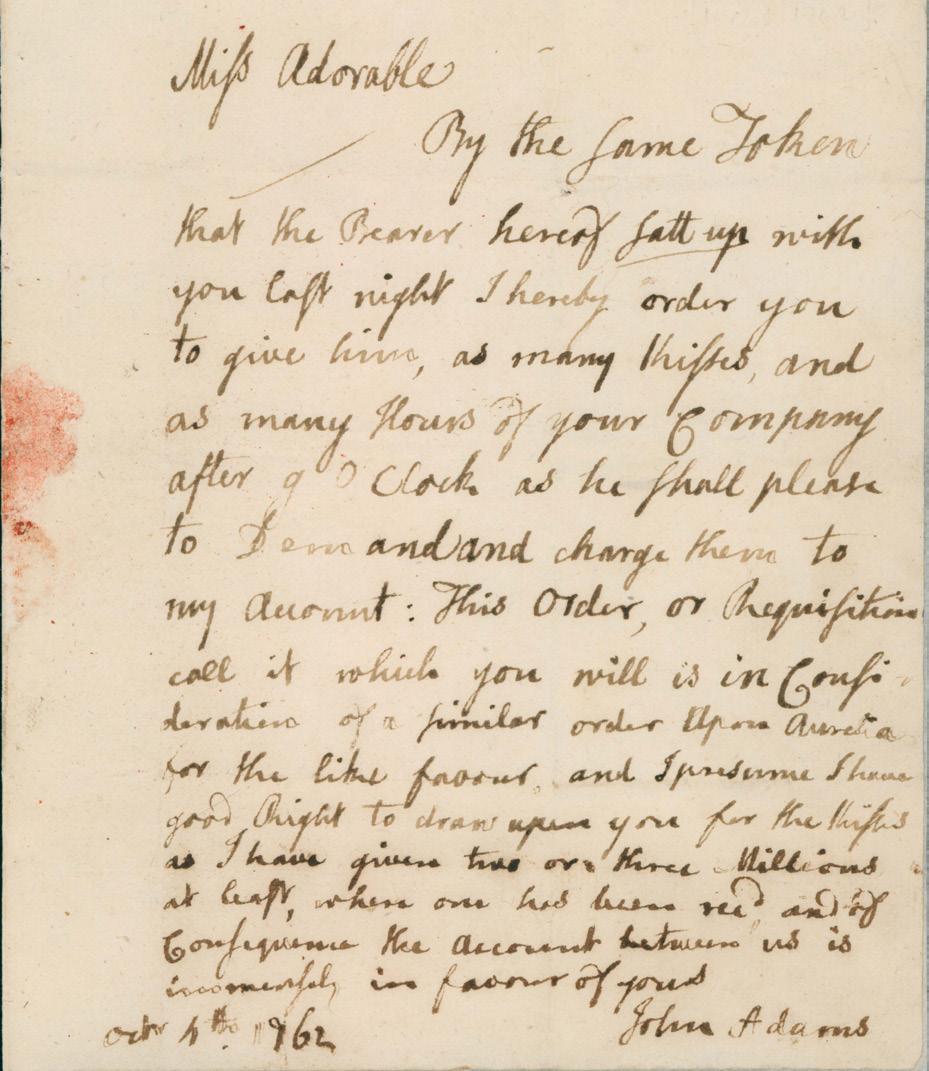 Miss Adorable
By the same Token
that the Bearer hereof satt up with
you last night I hereby order you
to give him, as many Kisses, and
as many Hours of your Company
after 9 O Clock as he shall please
to Demand and charge them to
my Account: This Order, or Requisition
call it which you will is in Consi-
deration of a similar order Upon Aurelia
for the like favour, and I presume I have
good Right to draw upon you for the Kisses
as I have given two or three Millions
at least, when one has been recd, and of
Consequence the Account between us is
immensely in favour of yours
John Adams
Octr 4th. 1762